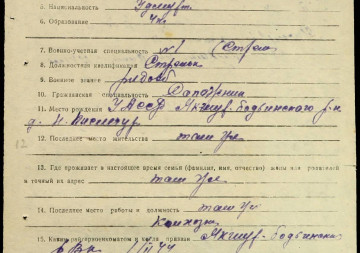 5. Национальность Удмурт.
6. Образование 4 кл.
7. Военно-учетная специальность №1 (Стрел
8. Должностная квалификация Стрелок
9. Военное звание рядовой
10. Гражданская специальность Сапожник
11. Место рождения УАССР Якшур-Бодьинского р-н
д.
12. Последнее место жительства там же
12
13. Где проживает в настоящее время семья (фамилия, имя, отчество) жены или родителей
и точный их адрес там же
14. Последнее место работы и должность там же
Колхозн
15. Каким райвоенкоматом и когда призван Якшур-Бодьинским
РВК 44